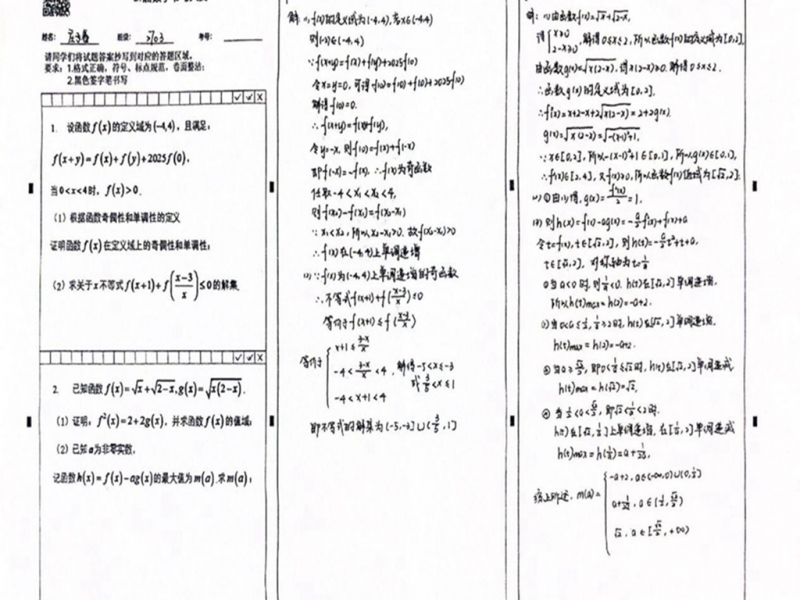 姓名:
班级:
考号:
请同学们将试题答案抄写到对应的答题区域,
要求:1.格式正确,符号、标点规范,卷面整洁;
2.黑色签字笔书写
1. 设函数f(x)的定义域为(-4,4),且满足:
f(x+y)=f(x)+f(y)+2025f(0),
当0<x<4时,f(x)>0.
(1)根据函数奇偶性和单调性的定义
证明函数f(x)在定义域上的奇偶性和单调性;
(2)求关于x不等式f(x+1)+f((x-3)/x)≤0的解集.
2. 已知函数f(x)=√x+√2-x,g(x)=√x(2-x).
(1)证明:f²(x)=2+2g(x),并求函数f(x)的值域;
(2)已知a为非零实数,
记函数h(x)=f(x)-ag(x)的最大值为m(a).求m(a);
解:(1)f(x)的定义域为(-4,4),若x∈(-4,4)
则(-x)∈(-4,4)
∵f(x+y)=f(x)+f(y)+2025f(0)
令x=y=0,可得f(0)=f(0)+f(0)+2025f(0)
解得f(0)=0.
∴f(x+y)=f(x)+f(y),
令y=-x,则f(0)=f(x)+f(-x)
即f(-x)=-f(x),∴f(x)为奇函数
任取-4<x₁<x₂<4,
则f(x₂)-f(x₁)=f(x₂-x₁)
∵x₁<x₂,所以x₂-x₁>0,故f(x₂-x₁)>0
∴f(x)在(-4,4)上单调递增
(2)∵f(x)为(-4,4)上单调递增的奇函数
∴不等式f(x+1)+f((x-3)/x)≤0
等价于f(x+1)≤f((3-x)/x)
等价于{x+1≤(3-x)/x
-4<(3-x)/x<4,解得-5<x≤-3
或3/5<x≤1
-4<x+1<4
即不等式的解集为(-5,-3]∪(3/5,1]
解:(1)由函数f(x)=√x+√2-x,
得{x≥0
2-x≥0,解得0≤x≤2,所以函数f(x)的定义域为[0,2],
由函数g(x)=√x(2-x),得x(2-x)≥0,解得0≤x≤2.
∴函数g(x)的定义域为[0,2].
∴f²(x)=x+2-x+2√x(2-x)=2+2g(x),
g(x)=√x(2-x)=√-(x-1)²+1,
∵x∈[0,2],所以-(x-1)²+1∈[0,1],所以g(x)∈[0,1],
∴f²(x)∈[2,4],又f(x)≥0,所以函数f(x)值域为[√2,2];
则h(x)=f(x)-ag(x)=-a/2f²(x)+f(x)+a
令t=f(x),t∈[√2,2],则h(t)=-a/2t²+t+a,
t∈[√2,2],对称轴为t=1/a
①当a<0时,则1/a<0,h(t)在[√2,2]单调递增,
所以h(t)max=h(2)=-a+2.
h(t)max=h(2)=-a+2.
h(t)max=h(√2)=√2,
h(t)在[√2,1/a]上单调递增,在[1/a,2]单调递减
h(t)max=h(1/a)=a+1/2a,
综上所述,m(a)={-a+2,a∈(-∞,0)∪(0,1/2]
a+1/2a,a∈(1/2,√2/2)
√2,a∈[√2/2,+∞)